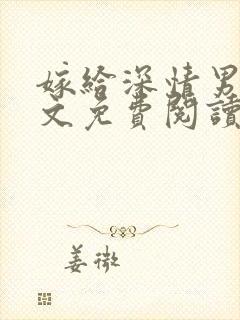 嫁給深情男
文免費閱讀
姜微